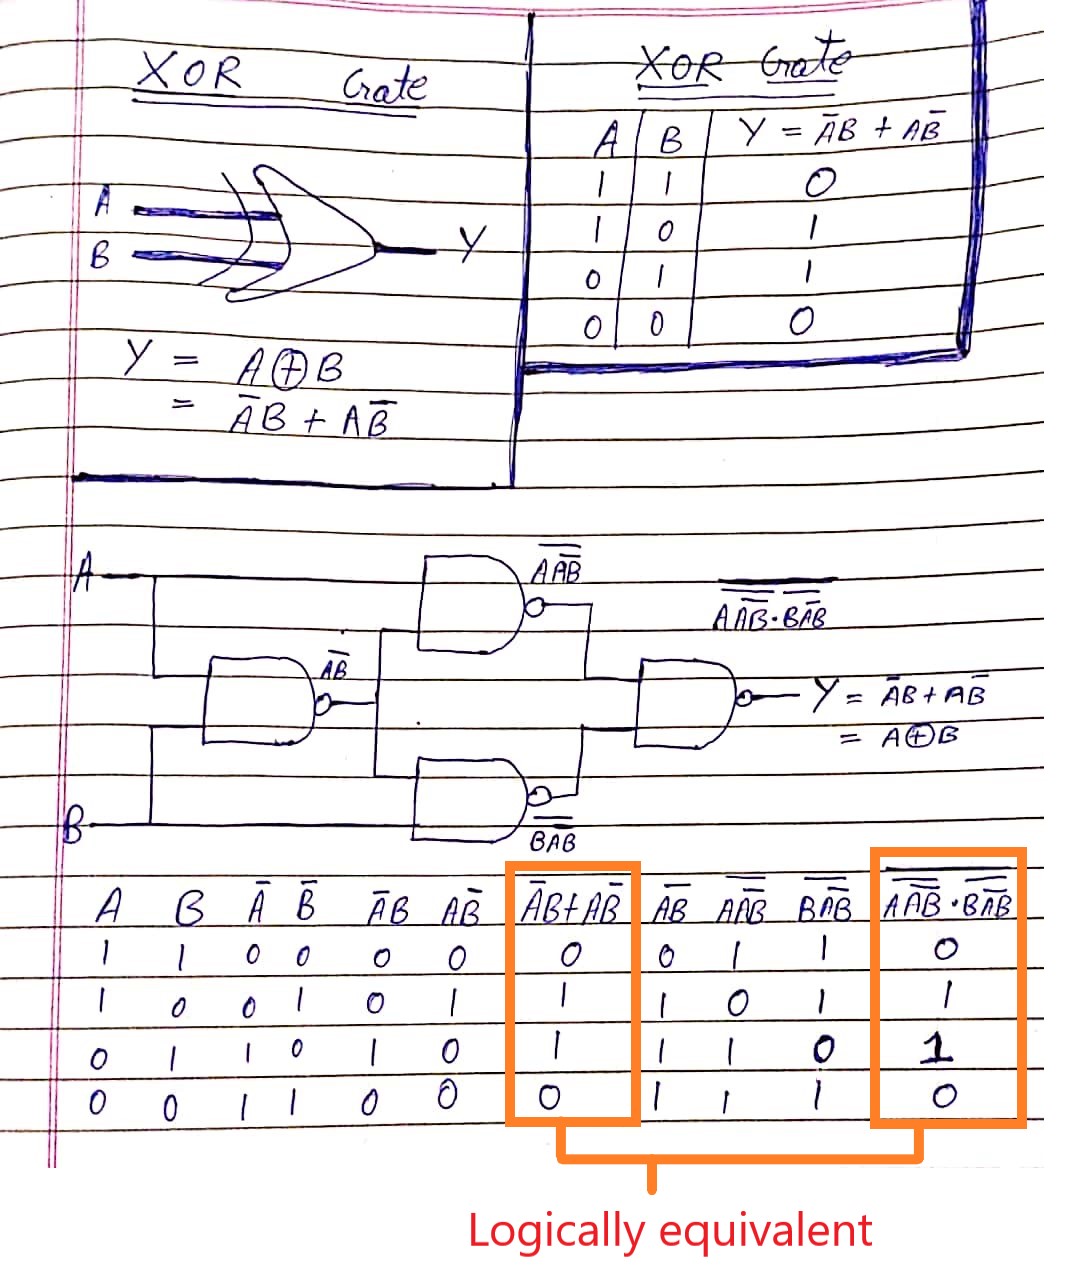 XOR Gate
A
B
Y
Y = A⊕B
= A̅B + AB̅
XOR Gate
A B Y = A̅B + AB̅
1 1 0
1 0 1
0 1 1
0 0 0
A
B
A̅B̅
A̅A̅B̅
B̅A̅B̅
A̅A̅B̅·B̅A̅B̅
Y = A̅B + AB̅
= A⊕B
A B A̅ B̅ A̅B AB̅ A̅B+AB̅ A̅B̅ A̅A̅B̅ B̅A̅B̅ A̅A̅B̅·B̅A̅B̅
1 1 0 0 0 0 0 0 1 1 0
1 0 0 1 0 1 1 1 0 1 1
0 1 1 0 1 0 1 1 1 0 1
0 0 1 1 0 0 0 1 1 1 0
Logically equivalent